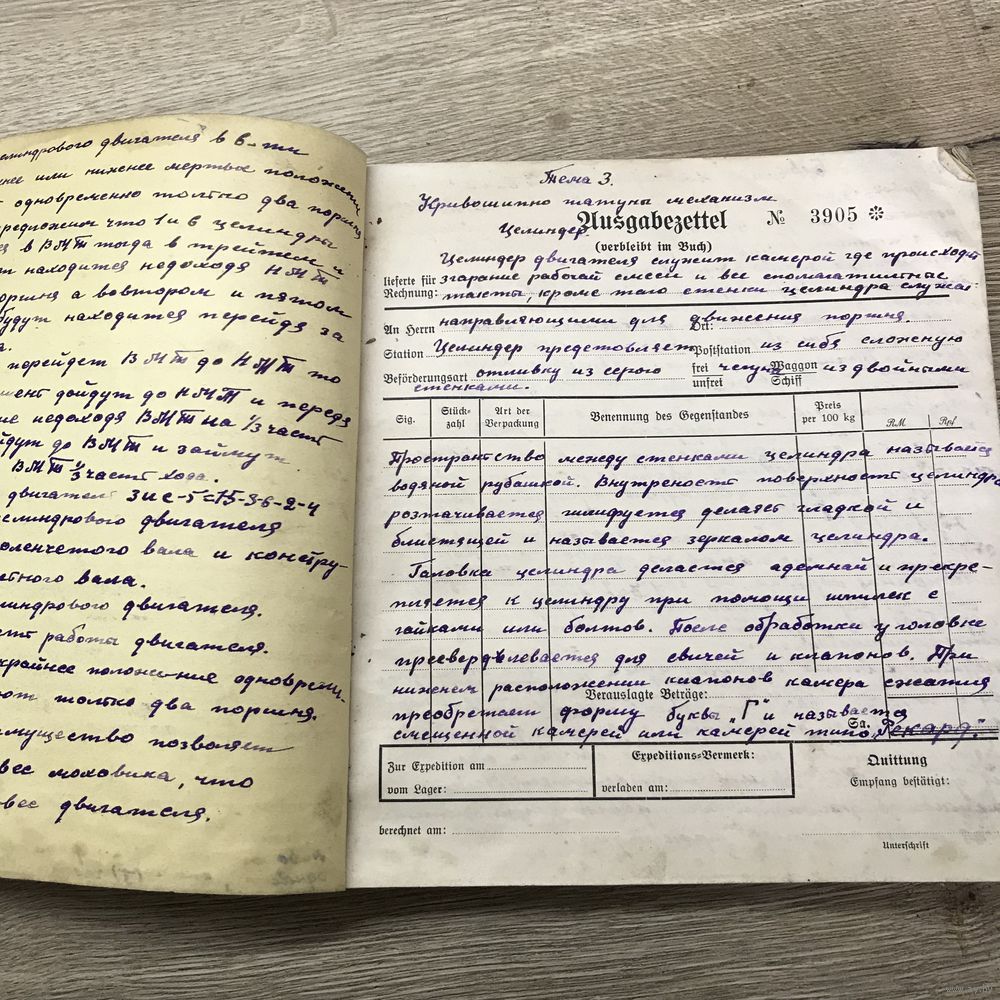 двигателя в в-ти
или нижнее мертвых положени
одновременно только два порш
что 1 и 6 цилиндры
в ВМТ тогда в третьем и
находится недоходя НМТ
а вовтором и пятом
будут находится перейдя за
перейдет ВМТ до НМТ то
дойдут до НМТ и перейдя
недоходя ВМТ на 1/3 част
до ВМТ и займут
ВМТ 1/3 част хода.
двигател
двигателя
вала и констру-
вала.
двигателя.
работы двигателя.
крайнее положение одноврем
только два поршня.
позволяет
вес моховика, что
вес двигателя.
Тема 3.
Кривошипно патуны механизм
Ausgabezettel № 3905
Целиндер
(verbleibt im Buch)
Целиндер двигателя служит камерой где происходит
lieferte für згарание рабочай смеси и все
Rechnung: такты, кроме того стенки целиндра служат
An Herrn направляющими для Ort: движения поршня.
Station Целиндер предстовляет Poststation из себя сложеную
Beförderungsart отливку из серого frei unfrei чегуна Waggon Schiff из двойными
стенками.
Sig. Stück-zahl Art der Verpackung Benennung des Gegenstandes Preis per 100 kg RM Rpf
Пространство между стенками целиндра называется
водяной рубашкой. Внутреност поверхност целиндра
розтачивается шлифуется делает гладкой и
блистящей и называется зеркалом целиндра.
Галовка целиндра деластся адемнай и прекре-
пляется к целиндру при помощи шпилек с
гайками или болтов. После обработки у головке
для свичей и клапонов. При
нижнем расположении клапонов камера сжатия
Verauslagte Beträge:
преобретает форму буквы „Г" и называется
Sa.
смещенной камерей или камерей типо „Рекард."
Zur Expedition am
vom Lager:
Expeditions-Vermerk:
verladen am:
Quittung
Empfang bestätigt:
berechnet am:
Unterschrift